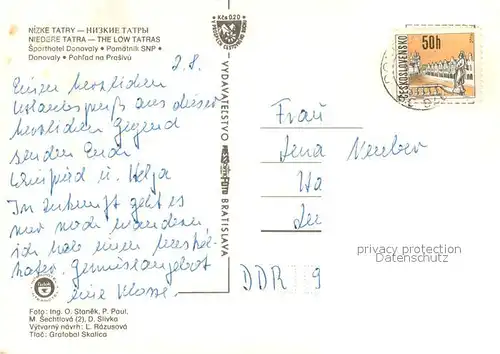 NÍZKE TATRY — НИЗКИЕ ТАТРЫ
NIEDERE TATRA — THE LOW TATRAS
Športhotel Donovaly • Pamätník SNP •
Donovaly • Pohľad na Prašivú
2.8.
Einen herzlichen
Urlaubsgruß aus dieser
herrlichen Gegend
senden Euch
u. Helja
In Zukunft geht es
nur noch wandern
ich habe einen Muskel-
kater. Gemüseangebot
eine Klasse.
Foto: Ing. O. Staněk, P. Paul,
M. Šechtlová (2), D. Slivka
Výtvarný návrh: L. Rázusová
Tlač: Grafobal Skalica
Kčs 0,20
VYDAVATEĽSTVO
BRATISLAVA
ČESKOSLOVENSKO
50h
Frau
Neuber
DDR 9
privacy protection
Datenschutz